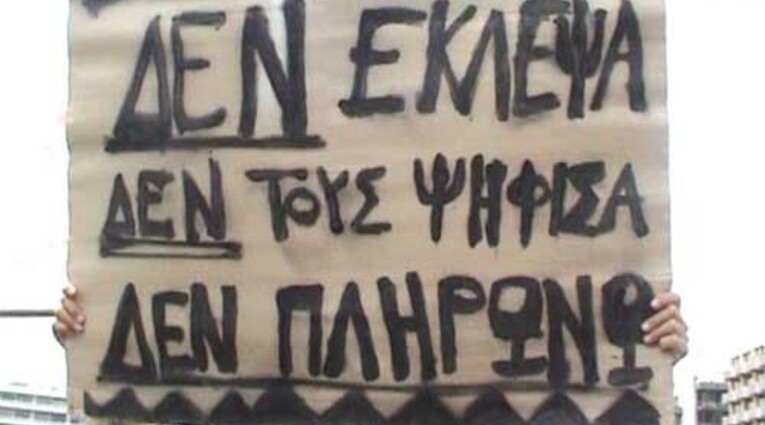 ΔΕΝ ΕΚΛΕΨΑ
ΔΕΝ ΤΟΥΣ ΨΗΦΙΣΑ
ΔΕΝ ΠΛΗΡΩΝΩ